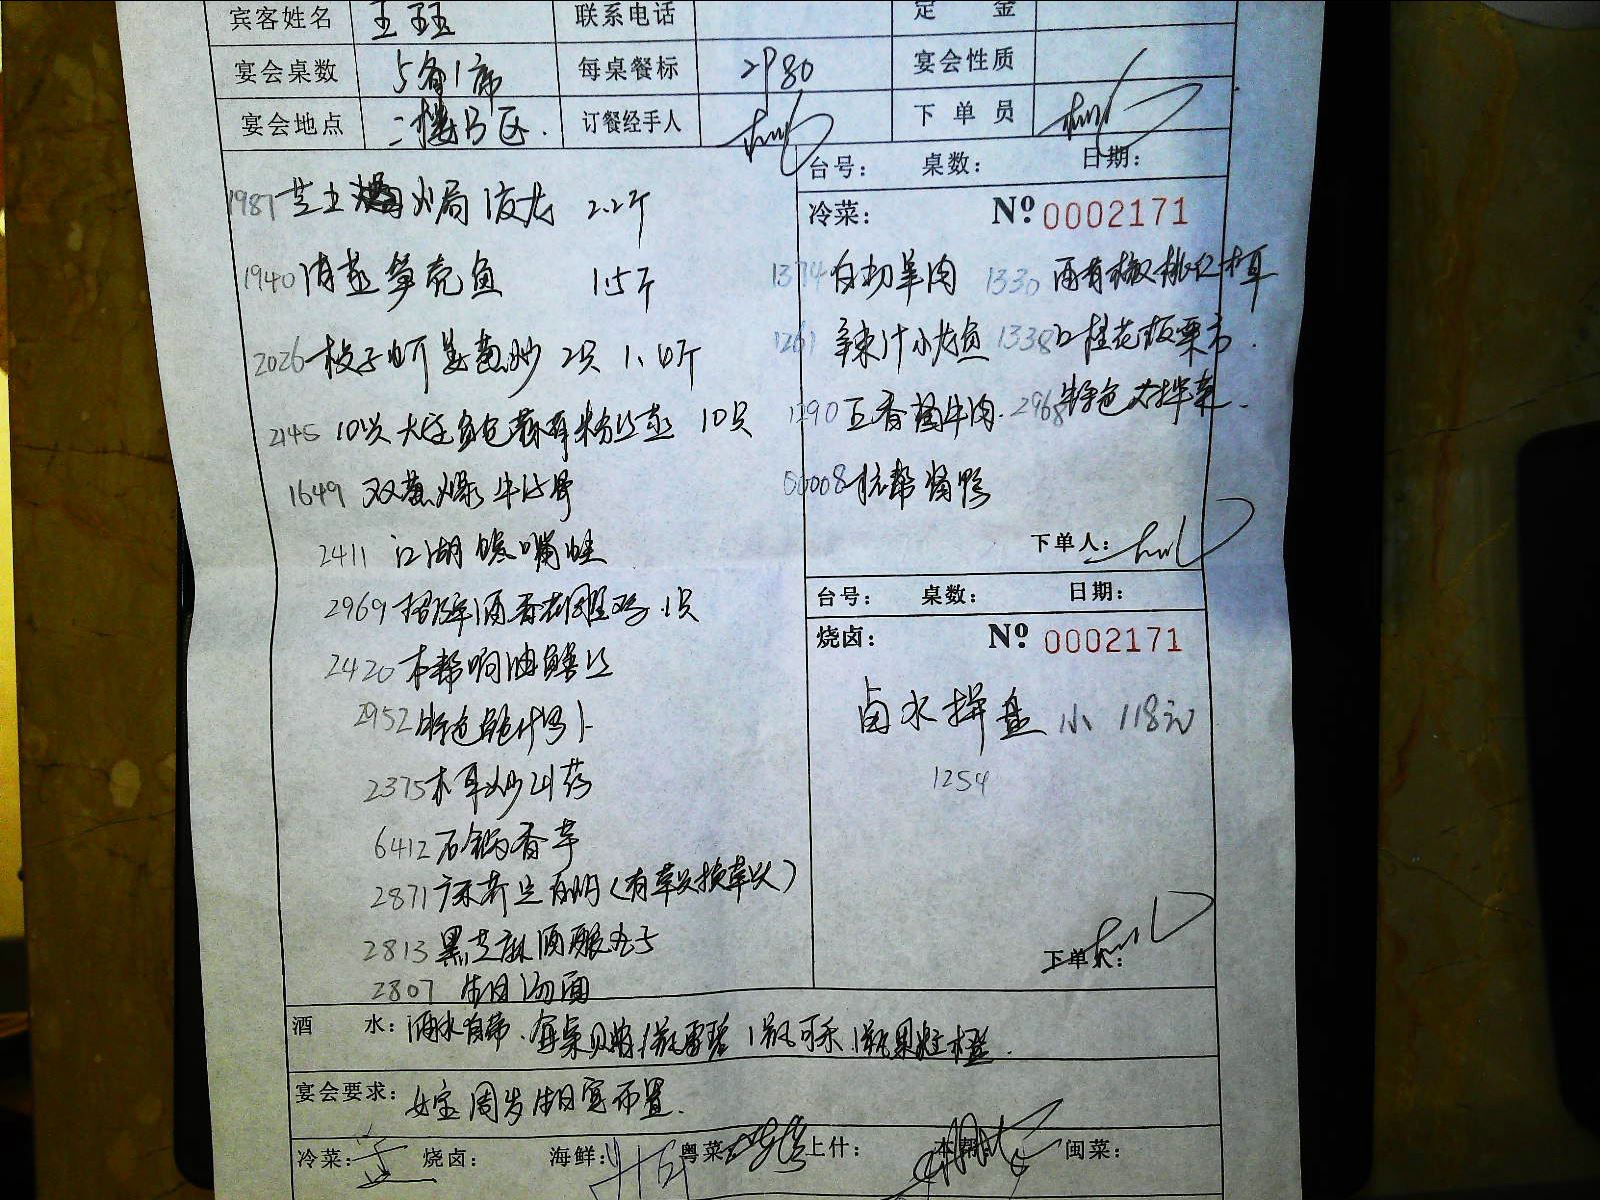 宾客姓名 王珏 联系电话 定 金
宴会桌数 5备1席 每桌餐标 2980 宴会性质
宴会地点 二楼B区. 订餐经手人 下 单 员
台号： 桌数： 日期：
1987 芝士焗 2.2斤
冷菜： Nº 0002171
1940 清蒸笋壳鱼 1.5斤
1374 白切羊肉 1330 桃仁木耳
2026 姜葱炒 2只
1261 辣汁小龙鱼 1338 桂花板栗
2145 10只大连鲍 粉丝蒸 10只
1290 五香酱牛肉. 2968 特色大拌菜.
1649 双葱爆牛仔骨
00008 杭帮酱鸭
2411 江湖馋嘴蛙
下单人：
2969 招牌酒香 1只
台号： 桌数： 日期：
2420 本帮响油鳝丝
烧卤： Nº 0002171
2952 特色
卤水拼盘 小 118元
2375 木耳炒山药
1254
6412 石锅香芋
2871 （有草头换草头）
2813 黑芝麻酒酿丸子
2807 生日汤面
下单人：
酒 水： 酒水自带. 每桌 1瓶雪碧 1瓶可乐 1瓶果粒橙.
宴会要求： 女宝周岁生日宴布置.
冷菜： 烧卤： 海鲜： 粤菜 上什： 本帮 闽菜：